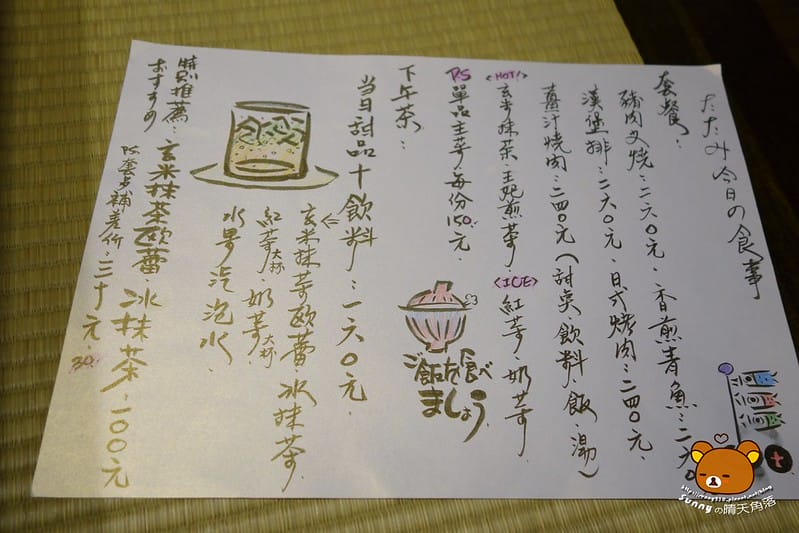 たたみ今日の食事
套餐：
豬肉叉燒：二六0元．香煎青魚：二六0
漢堡排：二六0元．日式烤肉：二四0元．
薑汁燒肉：二四0元（甜点．飲料．飯．湯）
<HOT!>
玄米抹茶．王妃煎茶．
<ICE>
紅茶．奶茶．
P.S 單品主菜每份150元．
ご飯を食べましょう
下午茶：
當日甜品十飲料：一六0元．
玄米抹茶歐蕾．冰抹茶．
紅茶大杯．奶茶大杯．
水果汽泡水．
特別推薦：
おすすめ
玄米抹茶歐蕾．冰抹茶．一00元
PS.套餐補差價：三十元．
30.
Sunnyの晴天角落